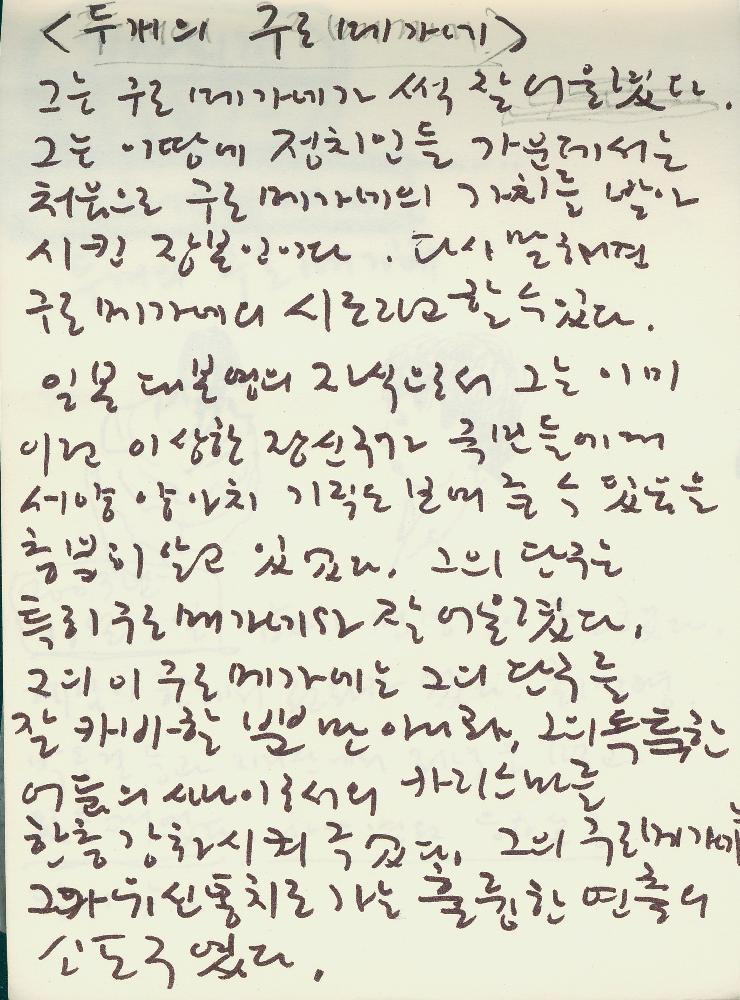 <두개의 구로메가네>
그는 구로메가네가 썩 잘 어울렸다.
그는 이땅에 정치인들 가운데서는
처음으로 구로메가네의 가치를 발아
시킨 장본인이다. 다시 말하면
구로메가네의 시조라고 할 수 있다.
일본 대본영의 자식으로서 그는 이미
이런 이상한 장신구가 국민들에게
서양 양아치 기릭도 보여 줄 수 있음을
충분히 알고 있었다. 그의 단구는
특히 구로메가네와 잘 어울렸다.
그의 이 구로메가네는 그의 단구를
잘 카바할 뿐만 아니라, 그의 독특한
어둠의 사나이로서의 카리스마를
한층 강화시켜 주었다. 그의 구로메가네는
그가 위선통치로 가는 훌륭한 연출의
소도구였다.